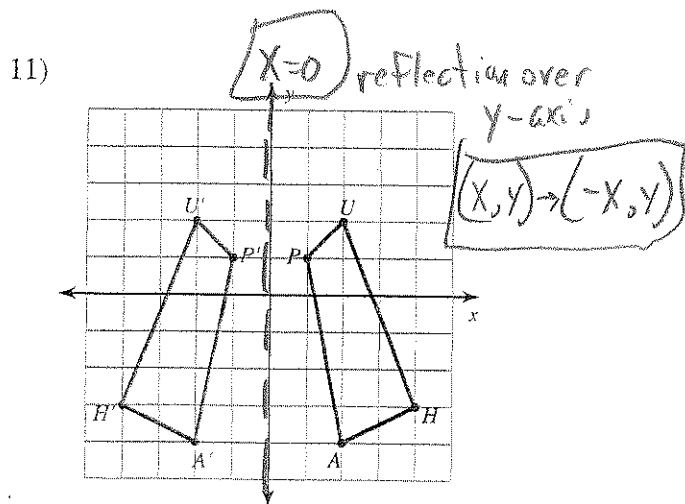 11)
X=0 reflection over
y-axis
y
(X,Y)→(-X,Y)
U' U
P' P
x
H' H
A' A